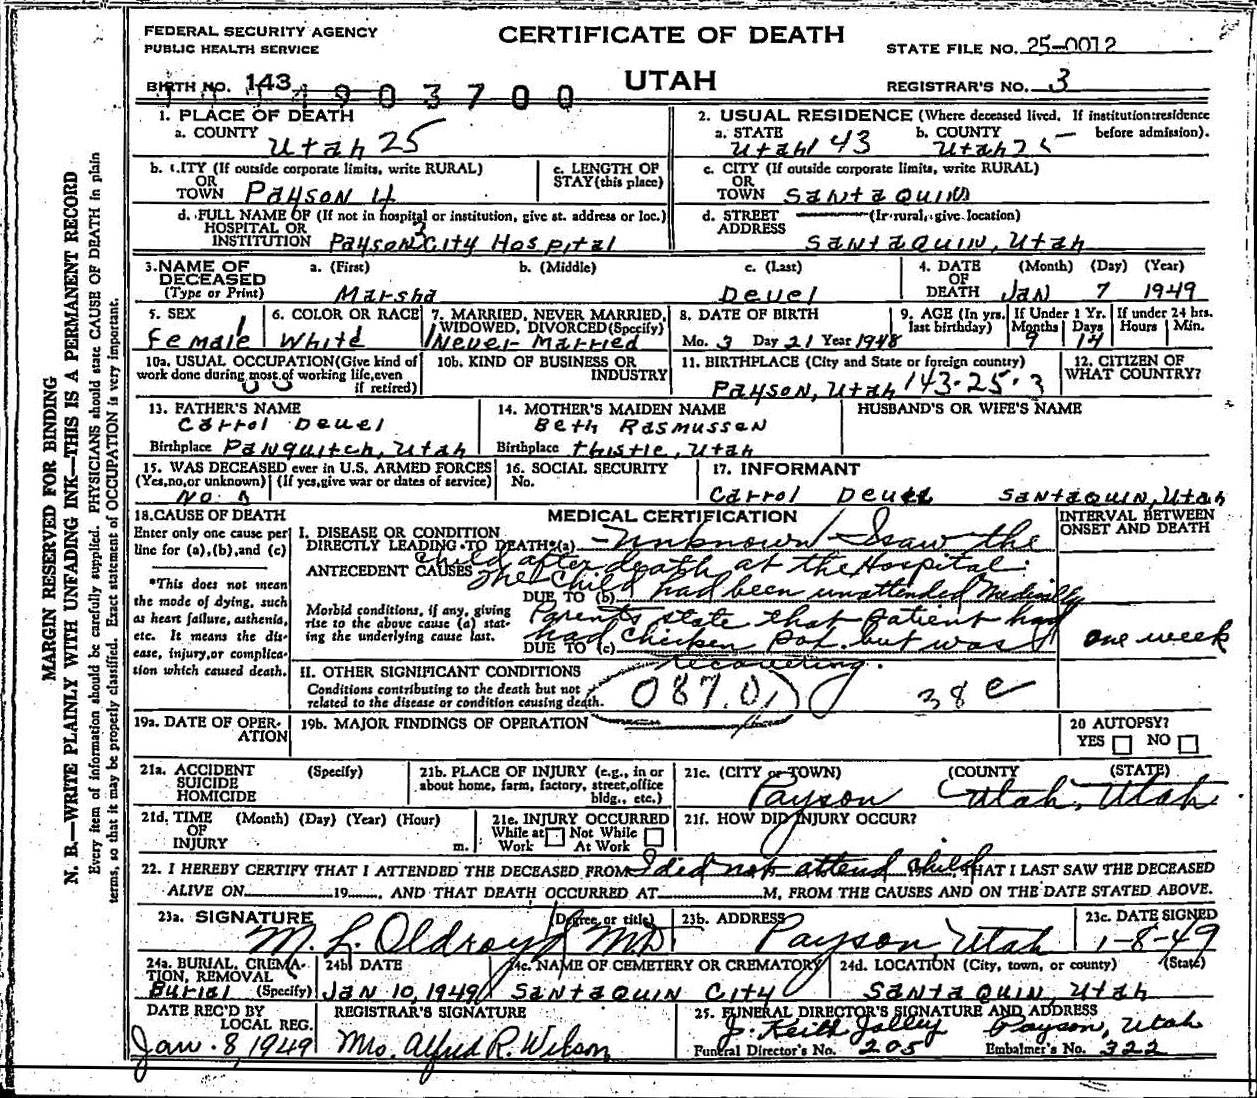 FEDERAL SECURITY AGENCY
PUBLIC HEALTH SERVICE
CERTIFICATE OF DEATH
STATE FILE NO. 25-0012
BIRTH NO. 143
4903700
UTAH
REGISTRAR'S NO. 3
1. PLACE OF DEATH
a. COUNTY Utah 25
2. USUAL RESIDENCE (Where deceased lived. If institution: residence before admission).
a. STATE Utah 143 b. COUNTY Utah 25
b. CITY (If outside corporate limits, write RURAL)
OR
TOWN Payson 4
c. LENGTH OF
STAY (this place)
c. CITY (If outside corporate limits, write RURAL)
OR
TOWN Santaquin
d. FULL NAME OF (If not in hospital or institution, give st. address or loc.)
HOSPITAL OR
INSTITUTION Payson City Hospital
3
d. STREET (If rural, give location)
ADDRESS Santaquin, Utah
3. NAME OF DECEASED
(Type or Print)
a. (First) Marsha
b. (Middle)
c. (Last) Deuel
4. DATE OF DEATH (Month) (Day) (Year)
Jan 7 1949
5. SEX
Female 1
6. COLOR OR RACE
White
7. MARRIED, NEVER MARRIED,
WIDOWED, DIVORCED (Specify)
1 Never Married
8. DATE OF BIRTH
Mo. 3 Day 21 Year 1948
9. AGE (In yrs. last birthday)
If Under 1 Yr. Months 9 Days 14
If under 24 hrs. Hours Min.
10a. USUAL OCCUPATION (Give kind of
work done during most of working life, even
if retired)
10b. KIND OF BUSINESS OR
INDUSTRY
11. BIRTHPLACE (City and State or foreign country)
Payson, Utah 143-25-3
12. CITIZEN OF
WHAT COUNTRY?
13. FATHER'S NAME
Carrol Deuel
Birthplace Panguitch, Utah
14. MOTHER'S MAIDEN NAME
Beth Rasmussen
Birthplace Thistle, Utah
HUSBAND'S OR WIFE'S NAME
15. WAS DECEASED ever in U.S. ARMED FORCES
(Yes, no, or unknown) (If yes, give war or dates of service)
No
16. SOCIAL SECURITY
No.
17. INFORMANT
Carrol Deuel Santaquin, Utah
18. CAUSE OF DEATH
Enter only one cause per
line for (a), (b), and (c)
*This does not mean
the mode of dying, such
as heart failure, asthenia,
etc. It means the dis-
ease, injury, or complica-
tion which caused death.
MEDICAL CERTIFICATION
INTERVAL BETWEEN
ONSET AND DEATH
I. DISEASE OR CONDITION
DIRECTLY LEADING TO DEATH*(a) Unknown I saw the
child after death at the Hospital.
ANTECEDENT CAUSES
The child had been unattended Medically
DUE TO (b)
Morbid conditions, if any, giving
rise to the above cause (a) stat-
ing the underlying cause last.
Parents state that Patient had
had chicken pox but was
DUE TO (c)
recovering.
one week
II. OTHER SIGNIFICANT CONDITIONS
Conditions contributing to the death but not
related to the disease or condition causing death.
087.0 38 e
19a. DATE OF OPER-
ATION
19b. MAJOR FINDINGS OF OPERATION
20 AUTOPSY?
YES NO
21a. ACCIDENT (Specify)
SUICIDE
HOMICIDE
21b. PLACE OF INJURY (e.g., in or
about home, farm, factory, street, office
bldg., etc.)
21c. (CITY or TOWN) (COUNTY (STATE)
Payson Utah, Utah
21d. TIME (Month) (Day) (Year) (Hour)
OF
INJURY m.
21e. INJURY OCCURRED
While at Work Not While At Work
21f. HOW DID INJURY OCCUR?
22. I HEREBY CERTIFY THAT I ATTENDED THE DECEASED FROM I did not attend child THAT I LAST SAW THE DECEASED
ALIVE ON 19 , AND THAT DEATH OCCURRED AT M, FROM THE CAUSES AND ON THE DATE STATED ABOVE.
23a. SIGNATURE (Degree or title)
M. L. Oldroyd MD
23b. ADDRESS
Payson Utah
23c. DATE SIGNED
1-8-49
24a. BURIAL, CREMA-
TION, REMOVAL
Burial (Specify)
24b DATE
Jan 10, 1949
24c. NAME OF CEMETERY OR CREMATORY
Santaquin City
24d. LOCATION (City, town, or county) (State)
Santaquin, Utah
DATE REC'D BY
LOCAL REG.
Jan. 8, 1949
REGISTRAR'S SIGNATURE
Mrs. Alfred R. Wilson
25. FUNERAL DIRECTOR'S SIGNATURE AND ADDRESS
J. Keith Jolley Payson, Utah
Funeral Director's No. 205 Embalmer's No. 322
MARGIN RESERVED FOR BINDING
N. B.—WRITE PLAINLY WITH UNFADING INK—THIS IS A PERMANENT RECORD
Every item of information should be carefully supplied. PHYSICIANS should state CAUSE OF DEATH in plain
terms, so that it may be properly classified. Exact statement of OCCUPATION is very important.